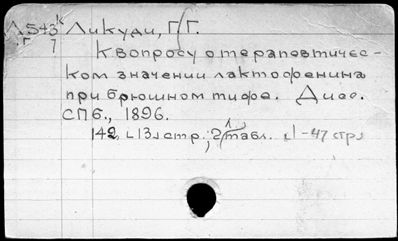 Л543к Ликуди, Г.Г.
г 7
К вопросу о терапевтичес-
ком значении лактофенина
при брюшном тифе. Дисс.
СПб., 1896.
142, [3] стр.; 2 табл. [1-47 стр]